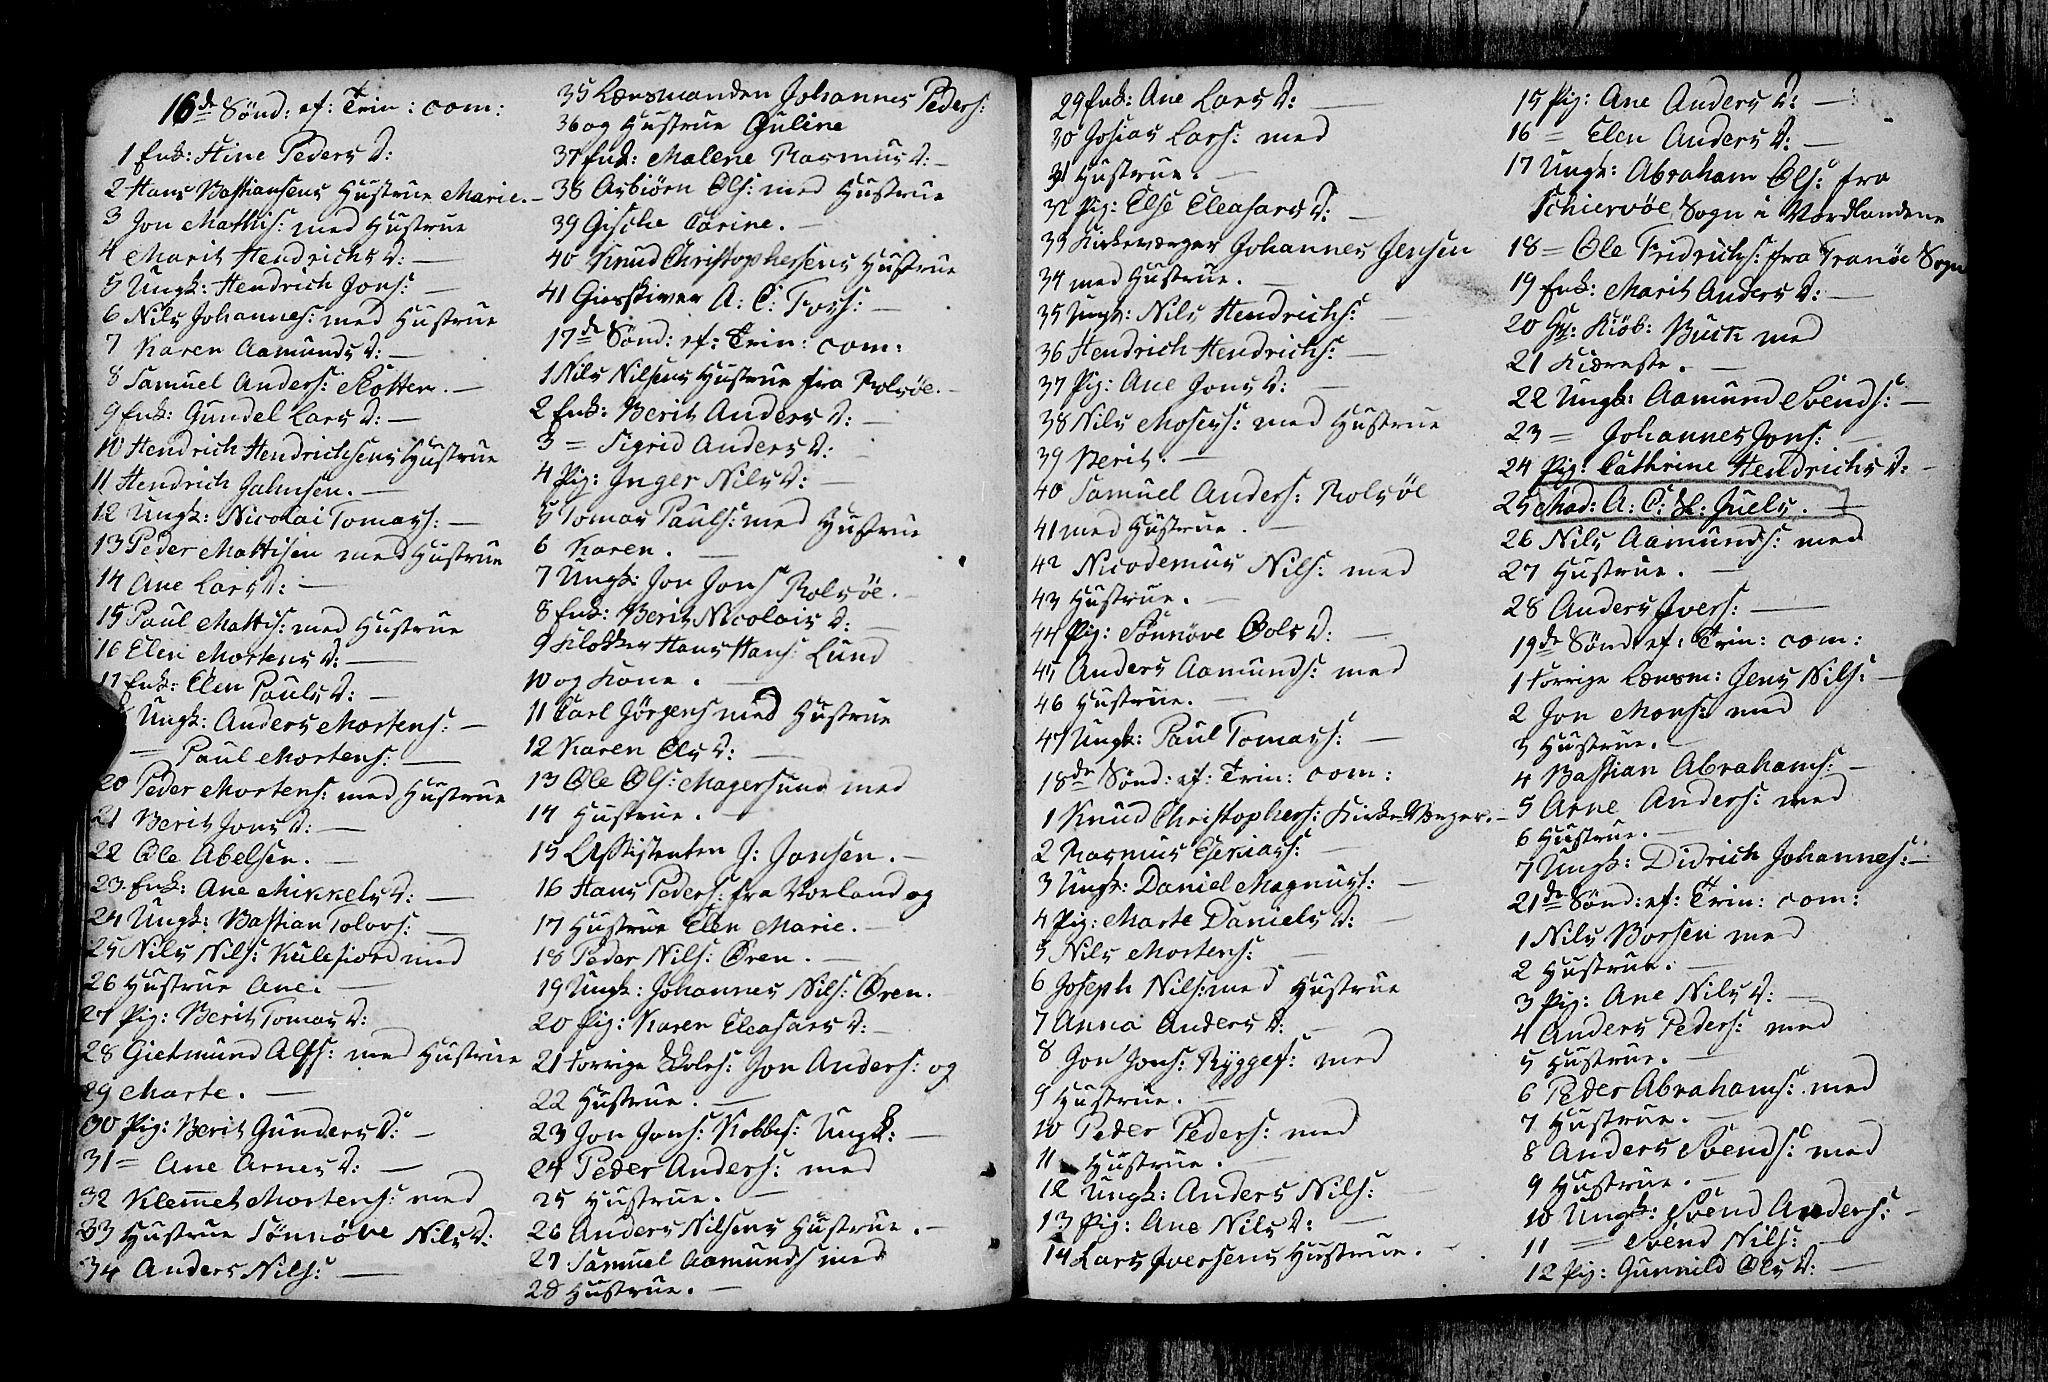 16de Sønd: ef: Trin: com:
1 Enk: Stine Peders D:
2 Hans Bastiansens Hustrue Marie. –
3 Jon Mathis: med Hustrue
4 Marit Hendrichs D: —
5 Ungk: Hendrich Jons: —
6 Nils Johannes: med Hustrue
7 Karen Aamunds D: —
8 Samuel Anders: Slotten. —
9 Enk: Gundel Lars D: —
10 Hendrich Hendrichsens Hustrue
11 Hendrich Jahnsen. —
12 Ungk: Nicolai Tomas: —
13 Peder Mattisen med Hustrue
14 Ane Lars D: —
15 Paul Mattis: med Hustrue
16 Elen Mortens D: —
17 Enk: Elen Pauls D: —
Ungk: Anders Mortens: —
— Paul Mortens: —
20 Peder Mortens: med Hustrue
21 Berit Jons D: —
22 Ole Abelsen. —
23 Enk: Ane Mikkels D: —
24 Ungk: Bastian Tolovs: —
25 Nils Nils: Kulefiord med
26 Hustrue Ane. —
27 Pig: Berit Tomas D:
28 Gietmund Alfs: med Hustrue
29 Marte. —
30 Pig: Berit Gunders D: —
31 = Ane Arnes D: —
32 Klemet Mortens: med
33 Hustrue Sønnøve Nils D:
34 Anders Nils: —
35 Lænsmanden Johannes Peders:
36 og Hustrue Guline
37 Enk: Malene Rasmus D: –
38 Asbiørn Ols: med Hustrue
39 Gische Carine. –
40 Knud Christophersens Hustrue
41 Gierskiver A: C: Fors: —
17de Sønd: ef: Trin: com:
1 Nils Nilsens Hustrue fra Rolsøe. –
2 Enk: Berit Anders D: —
3 = Sigrid Anders D: —
4 Pig: Inger Nils D: —
5 Tomas Pauls: med Hustrue
6 Karen. —
7 Ungk: Jon Jons Rolsøe. –
8 Enk: Berit Nicolais D: —
9 Klokker Hans Hans: Lund
10 og Kone. —
11 Carl Jørgens med Hustrue
12 Karen Ols D: —
13 Ole Ols: Magersund med
14 Hustrue. —
15 Assistenten J: Jansen. –
16 Hans Peders: fra Vorland og
17 Hustrue Elen Marie. –
18 Peder Nils: Øren. —
19 Ungk: Johannes Nils: Øren. –
20 Pig: Karen Eleasars D: –
21 forrige Skoles: Jon Anders: og
22 Hustrue. —
23 Jon Jons: Kobbef: Ungk: —
24 Peder Anders: med
25 Hustrue. —
26 Anders Nilsens Hustrue. –
27 Samuel Aamunds med
28 Hustrue. —
29 Enk: Ane Lars D: —
30 Josias Lars: med
31 Hustrue. —
32 Pig: Else Eleasars D: —
33 Kirkeværger Johannes Jensen
34 med Hustrue. —
35 Ungk: Nils Hendrichs: —
36 Hendrich Hendrichs: —
37 Pig: Ane Jons D: —
38 Nils Moses: med Hustrue
39 Berit. —
40 Samuel Anders: Rolsøe
41 med Hustrue. —
42 Nicodemus Nils: med
43 Hustrue. —
44 Pig: Sønnøve Ools D: —
45 Anders Aamunds: med
46 Hustrue. —
47 Ungk: Paul Tomas: —
18de Sønd: ef: Trin: com:
1 Knud Christophers: Kirke Værger. –
2 Rasmus Esaias: —
3 Ungk: Daniel Magnus: —
4 Pig: Marte Daniels D: —
5 Nils Mortens: —
6 Joseph Nils: med Hustrue
7 Anna Anders D: —
8 Jon Jons: Ryggef: med
9 Hustrue. —
10 Peder Peders: med
11 Hustrue. —
12 Ungk: Anders Nils: —
13 Pig: Ane Nils D: —
14 Lars Iversens Hustrue. –
15 Pig: Ane Anders D: —
16 = Elen Anders D: —
17 Ungk: Abraham Ols: fra
Schiervöe Sogn i Nordlandene
18 = Ole Fridrichs: fra Tranøe Sogn
19 Enk: Marit Anders D: —
20 Hr: Kiøb: Buck med
21 Kiæreste. —
22 Ungk: Aamund Svends: —
23 = Johannes Jons: —
24 Pig: Cathrine Hendrichs D: –
25 Mad: A: C: Sl: Juels. —
26 Nils Aamunds: med
27 Hustrue. —
28 Anders Ivers: —
19de Sønd: ef: Trin: com:
1 forrige Lænsm: Jens Nils: –
2 Jon Mons: med
3 Hustrue. —
4 Bastian Abrahams: –
5 Arne Anders: med
6 Hustrue. —
7 Ungk: Didrich Johannes: –
21de Sønd: ef: Trin: com:
1 Nils Borsen med
2 Hustrue. —
3 Pig: Ane Nils D: —
4 Anders Peders: med
5 Hustrue. —
6 Peder Abrahams: med
7 Hustrue. —
8 Anders Svends: med
9 Hustrue. —
10 Ungk: Svend Anders: –
11 = Svend Nils: —
12 Pig: Gunnild Ols D: —